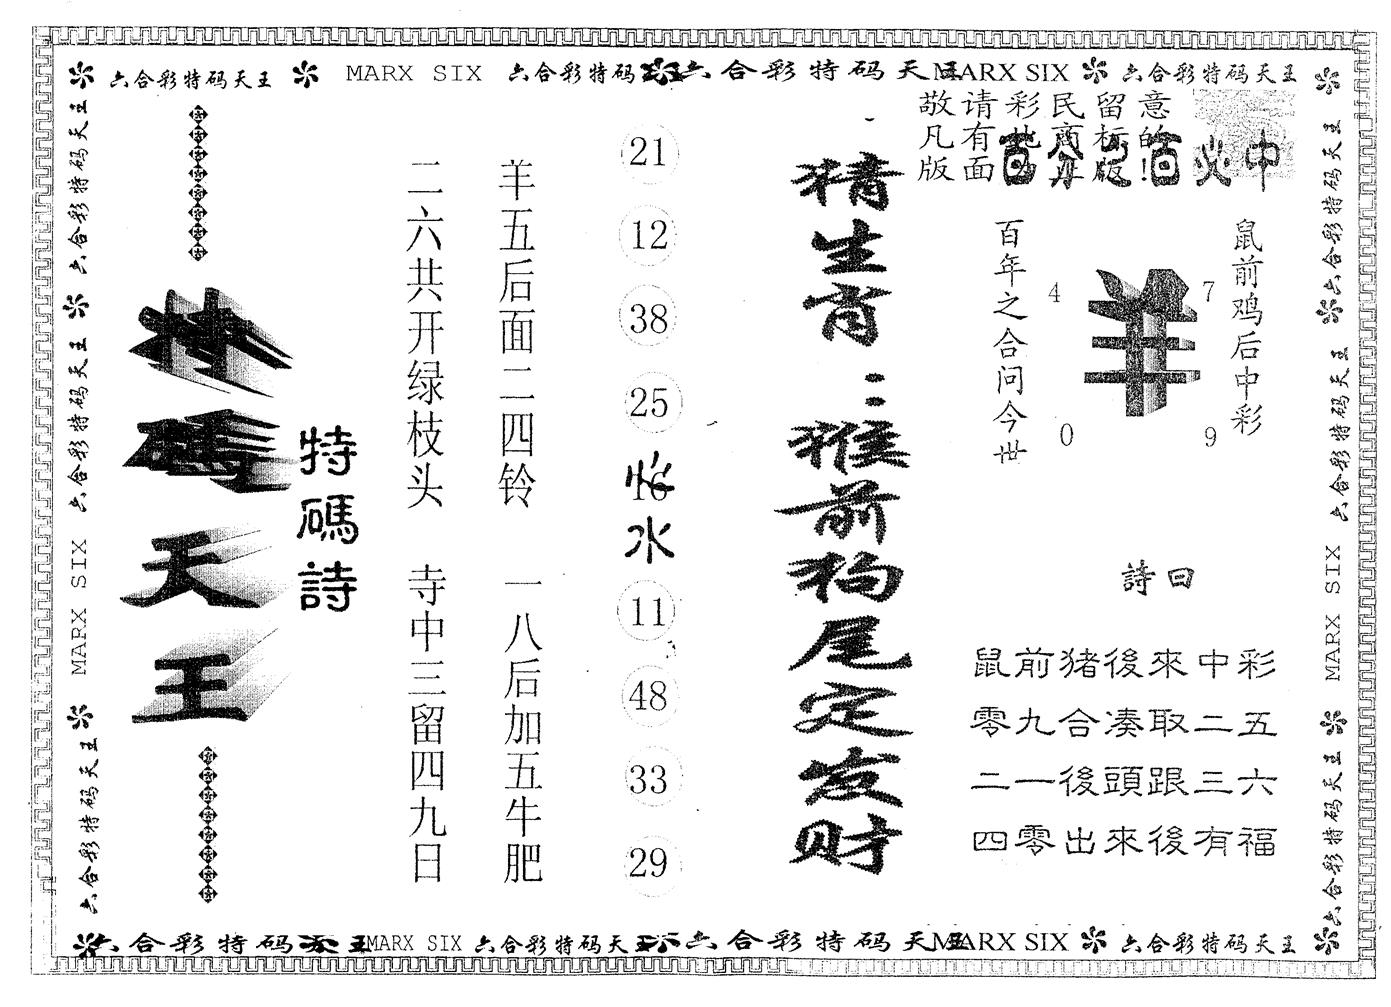 六合彩特码天王 MARX SIX 六合彩特码 六合彩特码天王 MARX SIX 六合彩特码天王
敬请彩民留意
凡有 商标的
版面 版!
百分之百必中
鼠前鸡后中彩
羊
4 7
0 9
百年之合问今世
詩曰
鼠前猪後來中彩
零九合凑取二五
二一後頭跟三六
四零出來後有福
猜生肖:猴前狗尾定发财
21
12
38
25
16
火
水
11
48
33
29
羊五后面二四铃 一八后加五牛肥
二六共开绿枝头 寺中三留四九日
特碼詩
特碼天王
六合彩特码天王 六合彩特码天王 MARX SIX 六合彩特码天王
六合彩特码天王 六合彩特码天王 MARX SIX 六合彩特码天王
六合彩特码天王 MARX SIX 六合彩特码天王 六合彩特码天王 MARX SIX 六合彩特码天王